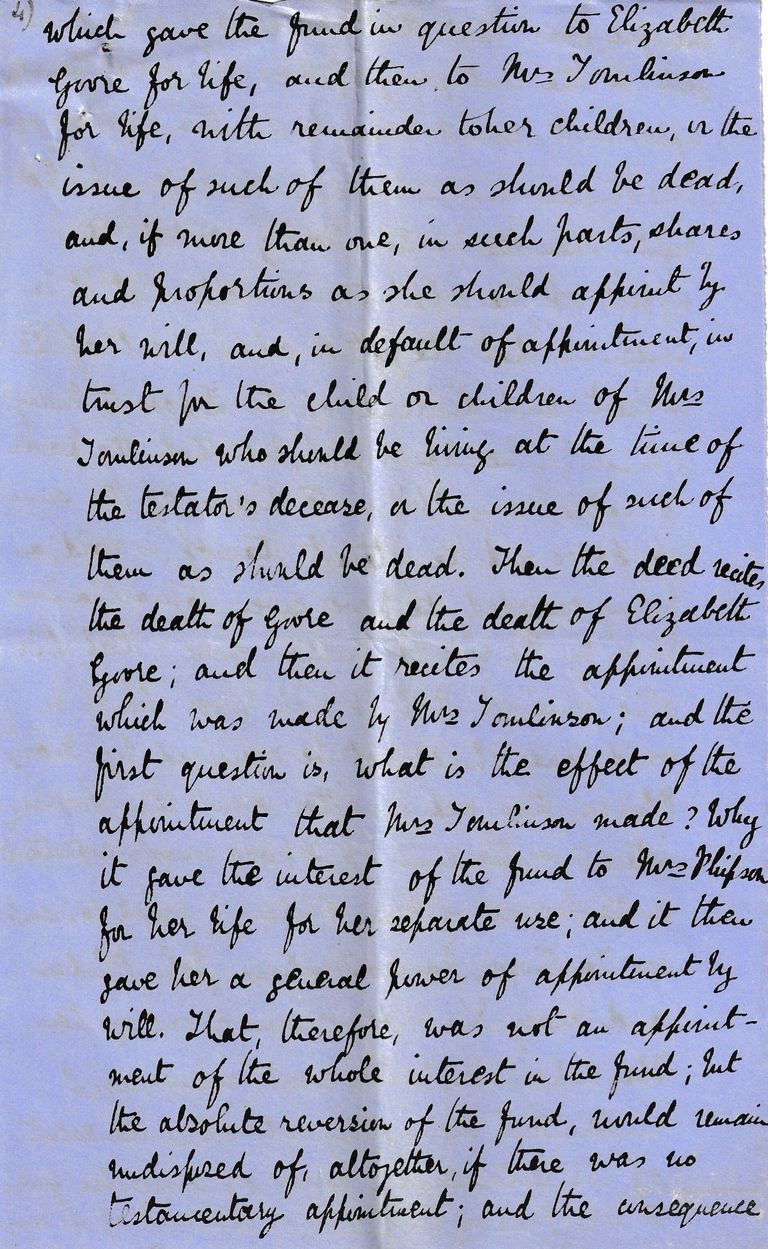 4)
which gave the fund in question to Elizabeth
Goore for life, and then to Mrs Tomlinson
for life, with remainder to her children, or the
issue of such of them as should be dead,
and, if more than one, in such parts, shares
and proportions as she should appoint by
her will, and, in default of appointment, in
trust for the child or children of Mrs
Tomlinson who should be living at the time of
the testator's decease, or the issue of such of
them as should be dead. Then the deed recites
the death of Goore and the death of Elizabeth
Goore; and then it recites the appointment
which was made by Mrs Tomlinson; and the
first question is, what is the effect of the
appointment that Mrs Tomlinson made? Why
it gave the interest of the fund to Mrs Phipson
for her life for her separate use; and it then
gave her a general power of appointment by
will. That, therefore, was not an appoint-
ment of the whole interest in the fund; but
the absolute reversion of the fund, would remain
undisposed of, altogether, if there was no
testamentary appointment; and the consequence